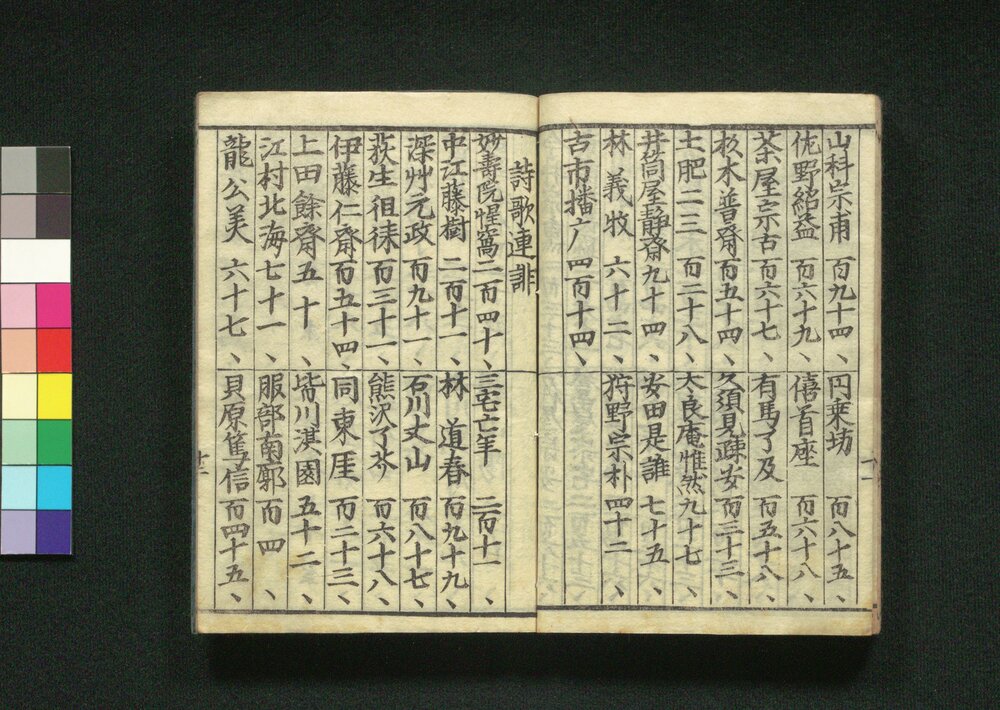 山科宗甫 百九十四、
円乗坊 百八十五、
佐野紹益 百六十九、
僖首座 百六十八、
茶屋宗古 百六十七、
有馬了及 百五十八、
杉木普斎 百五十四、
久須見疎安 百三十三、
土肥二三 百二十八、
大良庵惟然 九十七、
井筒屋静斎 九十四、
安田是誰 七十五、
林義牧 六十二、
狩野宗朴 四十二、
古市播广 四百十四、
詩歌連誹
妙寿院惺窩 二百四十、
三宅亡羊 二百十一、
中江藤樹 二百十一、
林道春 百九十九、
深艸元政 百九十一、
石川丈山 百八十七、
荻生徂徠 百三十一、
熊沢了芥 百六十八、
伊藤仁斎 百五十四、
同東厓 百二十三、
上田餘齋 五十、
皆川淇園 五十二、
江村北海 七十一、
服部南郭 百四、
龍公美 六十七、
貝原篤信 百四十五、
十一